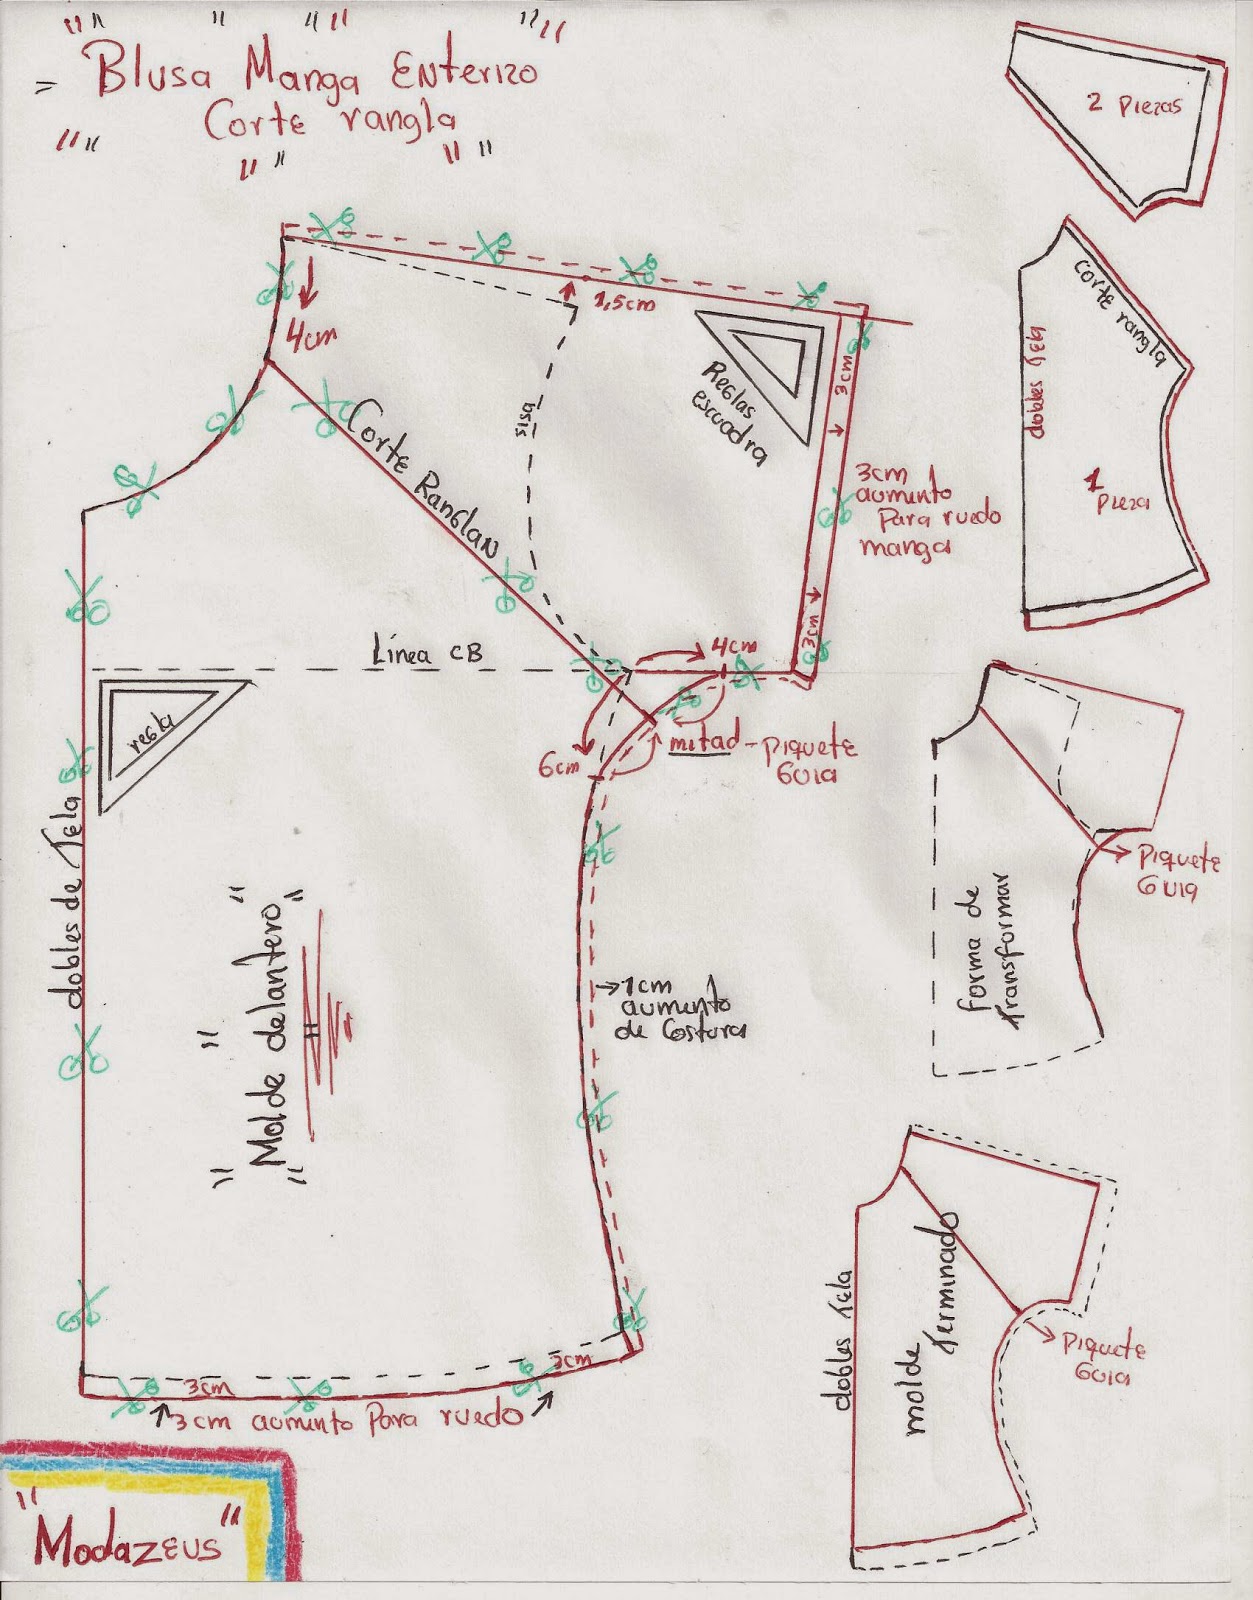 Blusa Manga Enterizo
Corte rangla
2 Piezas
4cm
1,5cm
Corte Ranglan
sisa
Reglas
escuadra
3cm
3cm
3cm
aumento
Para ruedo
manga
corte rangla
dobles tela
1
Pieza
Línea CB
4cm
regla
6cm
mitad - Piquete
Guia
dobles de tela
"Molde delantero"
→1cm
aumento
de costura
forma de
transformar
Piquete
Guia
3cm
3cm
3cm aumento Para ruedo
dobles tela
molde
terminado
Piquete
Guia
"Modazeus"